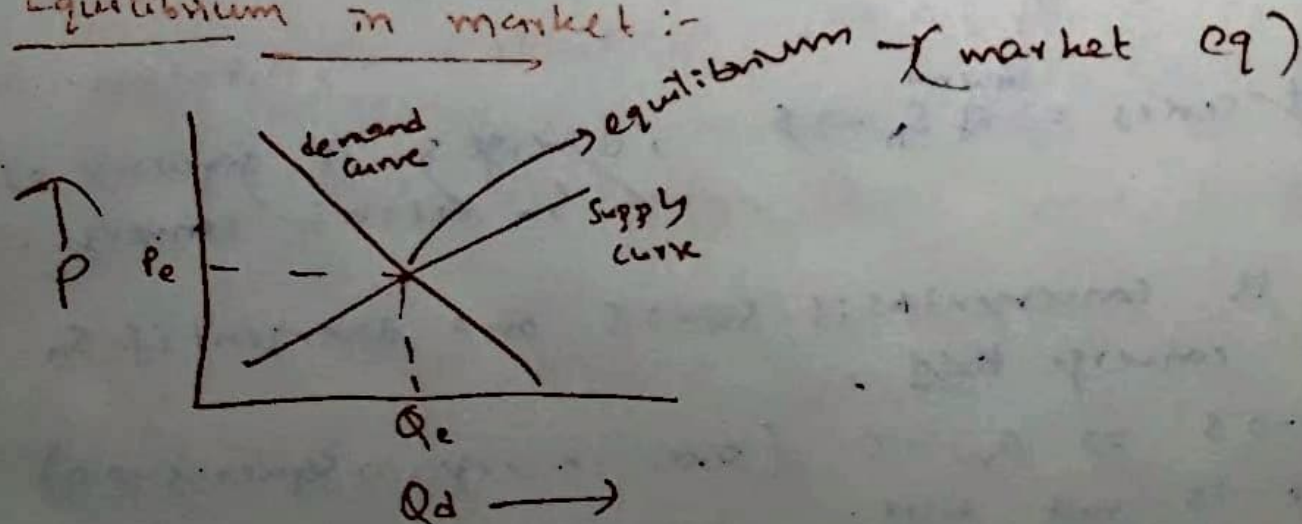 Equilibrium in market :-
equilibrium - (market eq)
demand
curve
supply
curve
P
Pe
Qe
Qd